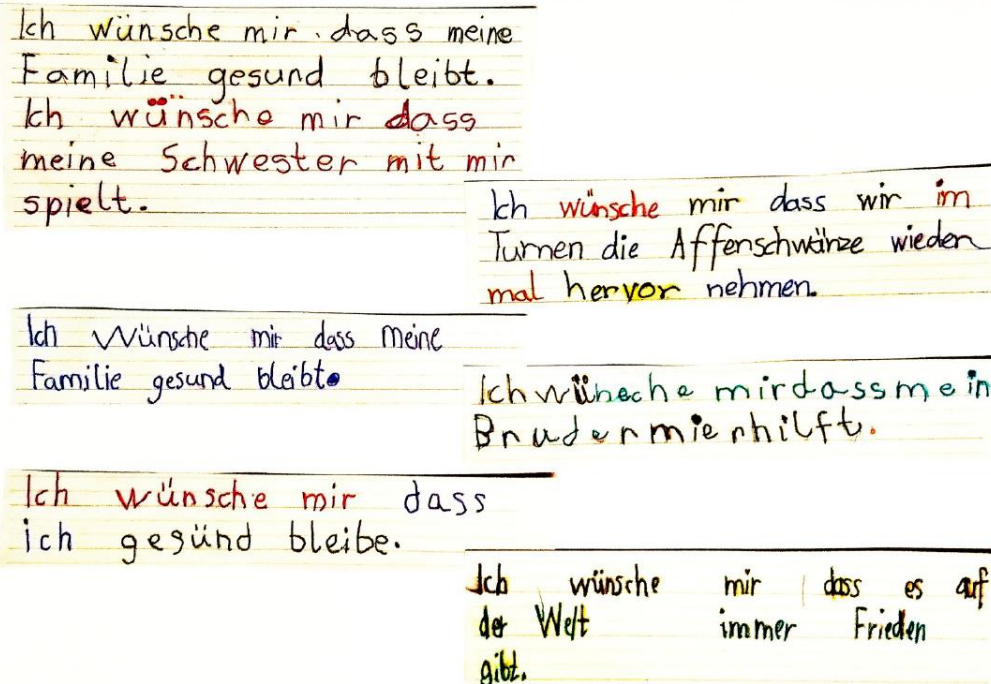 Ich wünsche mir dass meine
Familie gesund bleibt.
Ich wünsche mir dass
meine Schwester mit mir
spielt.
Ich wünsche mir dass wir im
Turnen die Affenschwänze wieder
mal hervor nehmen.
Ich Wünsche mir dass meine
Familie gesund bleibt.
Ich wünsche mirdassmein
Brudermierhilft.
Ich wünsche mir dass
ich gesünd bleibe.
Ich wünsche mir dass es auf
der Welt immer Frieden
gibt.